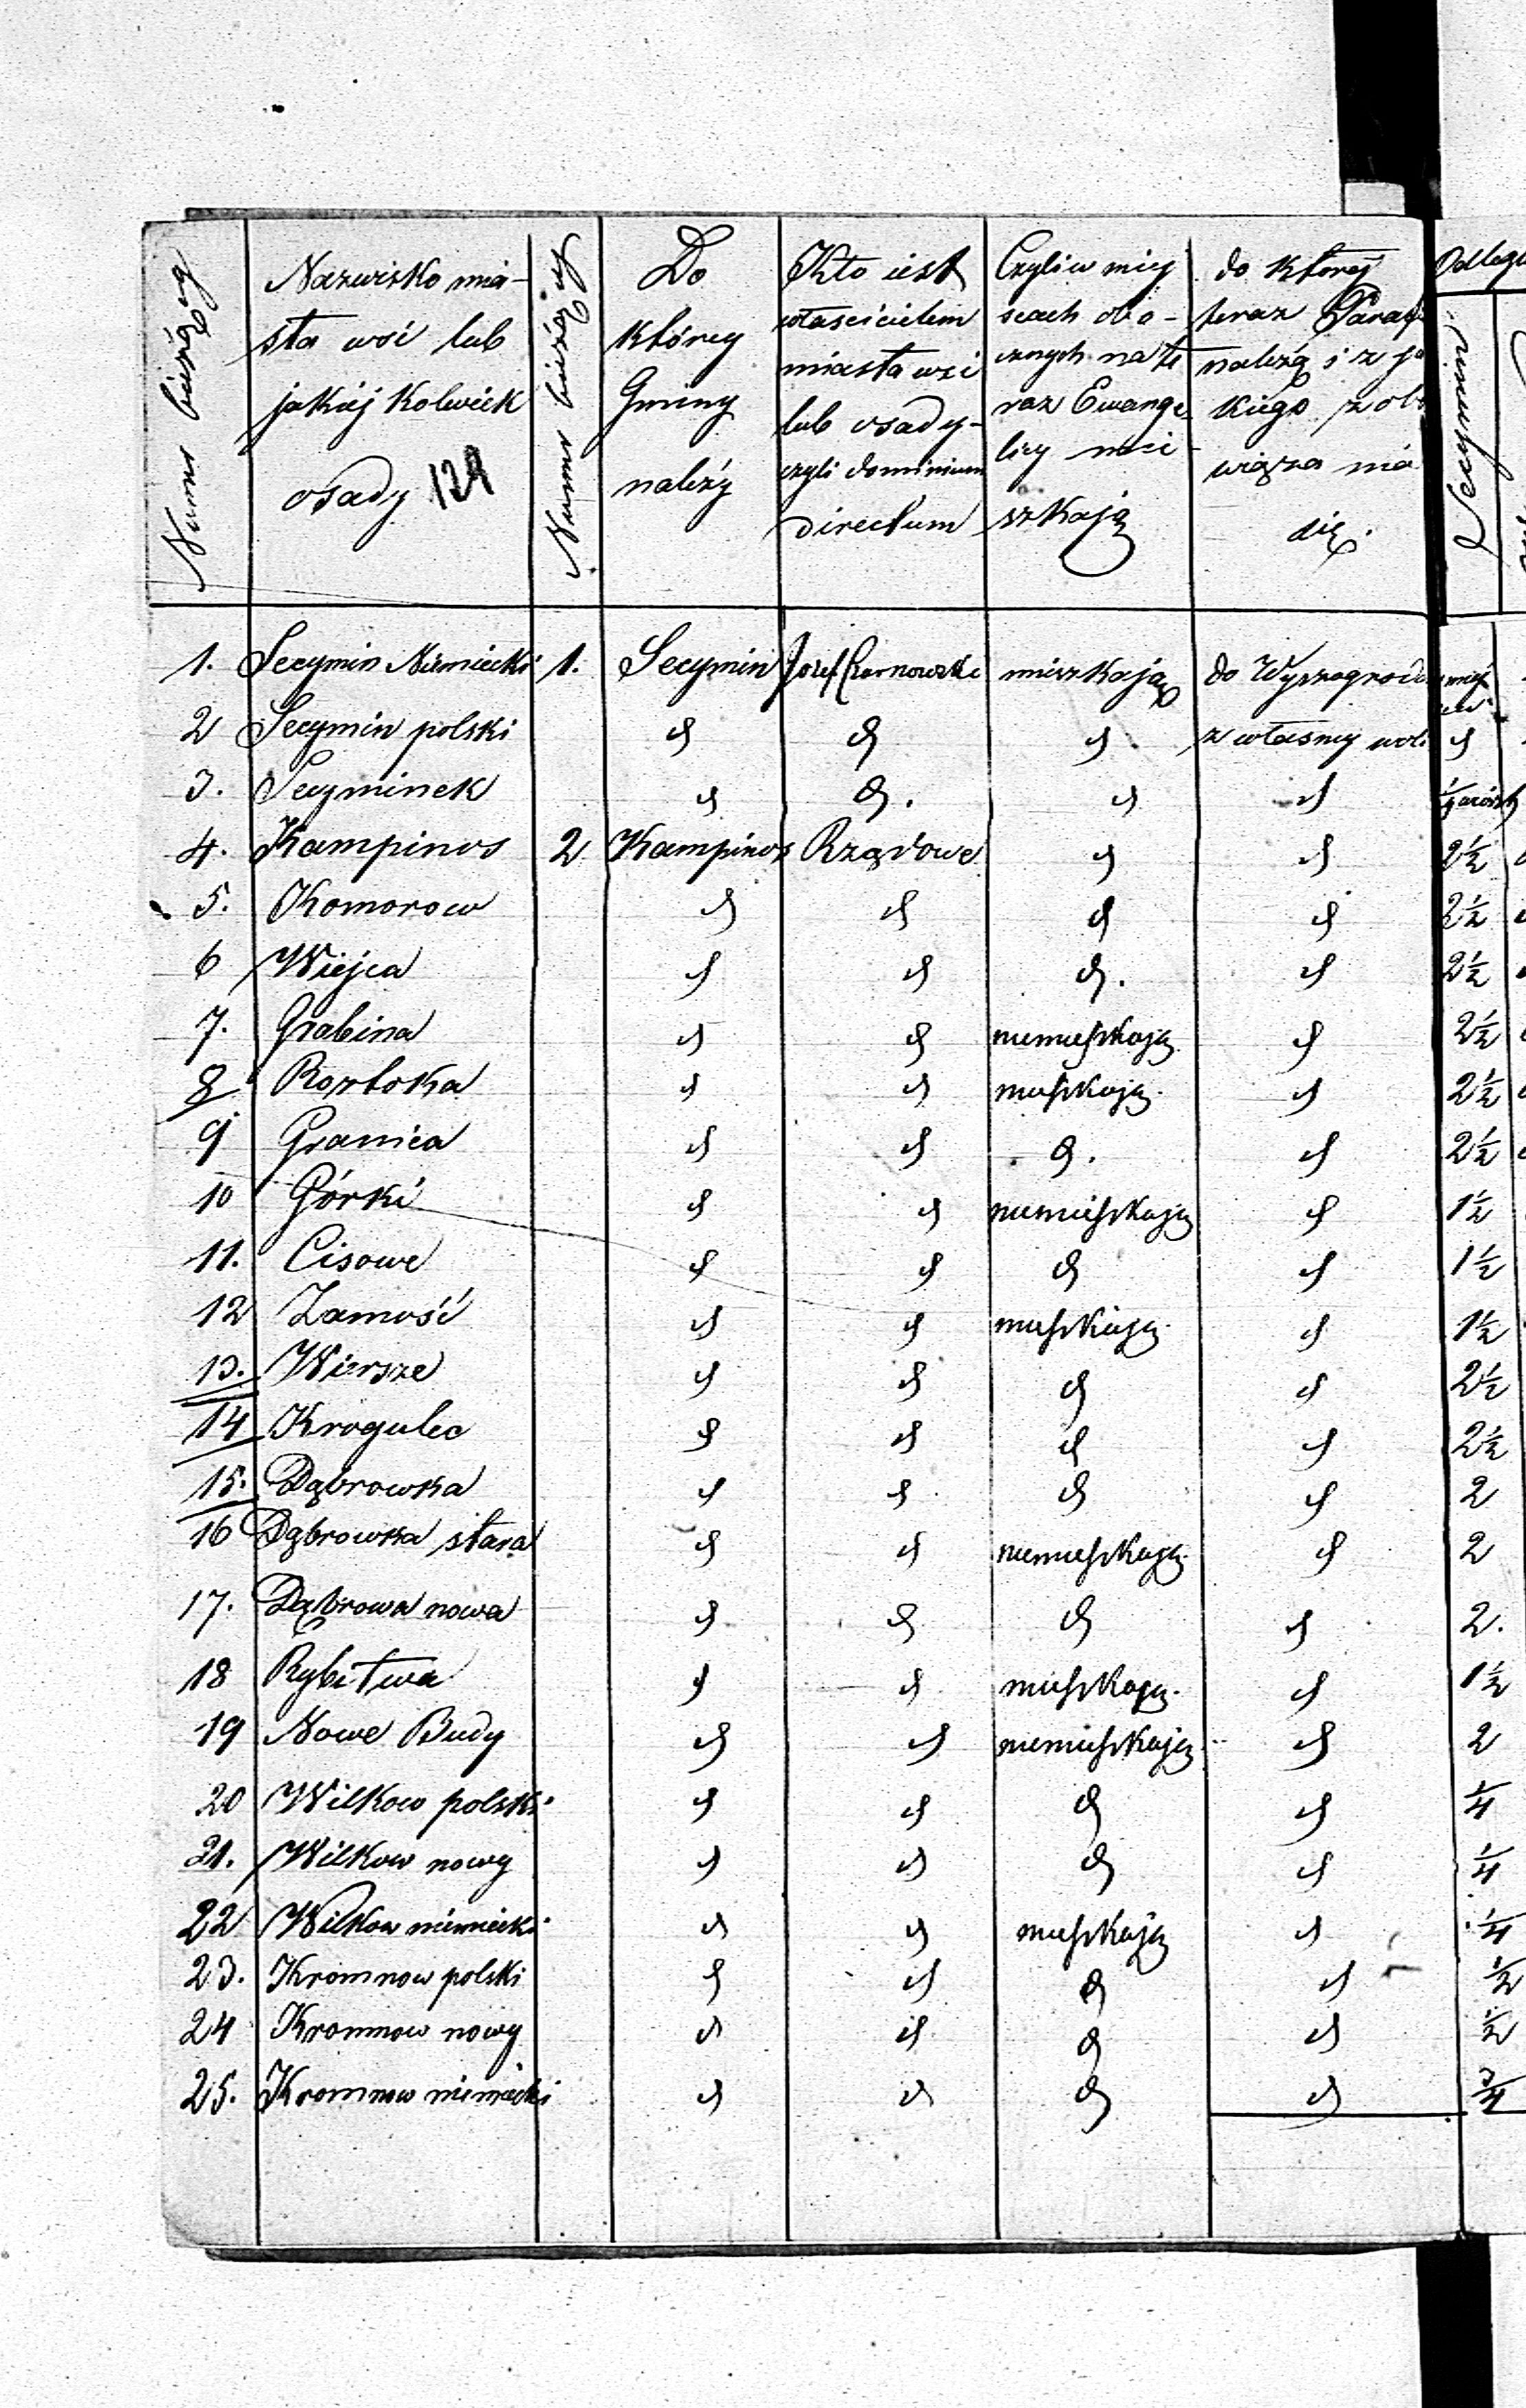 Numer bieżący
Nazwisko mia-
sta wsi lub
jakiéj kolwiek
osady 124
Numer bieżący
Do
którey
Gminy
należy
Kto iest
własicielem
miasta wsi
lub osady
czyli dominium
directum
Czyli w miey
scach obo-
cznych na te
raz Ewange-
licy mie-
szkają
do któréj
teraz Paraf
należą i z ja
kiego zobo
wiąza nia
się.
Odleg
Secymin
1. Secymin Niemiecki 1. Secymin Jozef Czarnowski mieszkają do Wyszogroda
2 Secymin polski d d d z własney woli d
3. Secyminek d d. d d
4. Kampinos 2 Kampinos Rządowe d d 2½
5. Komorow d d d d 2½
6 Wiejca d d d. d 2½
7. Grabina d d niemieszkają d 2½
8 Rozłoka d d mieszkają. d 2½
9 Granica d d d. d 2½
10 Górki d d niemieszkają d 1½
11. Cisowe d d d d 1½
12 Zamość d d mieszkają. d 1½
13. Wiersze d d d d 2½
14 Krogulec d d d d 2½
15. Dąbrowka d d d d 2
16 Dąbrowka stara d d niemieszkają. d 2
17. Dąbrowa nowa d d d d 2.
18 Rybitwa d d mieszkają. d 1½
19 Nowe Budy d d niemieszkają d 2
20 Wilkow polski d d d d ¼
21. Wilkow nowy d d d d ¼
22 Wilkow niemiecki d d mieszkają d ¼
23. Kromnow polski d d d d ½
24 Kromnow nowy d d d d ½
25. Kromnow niemiecki d d d d ¾